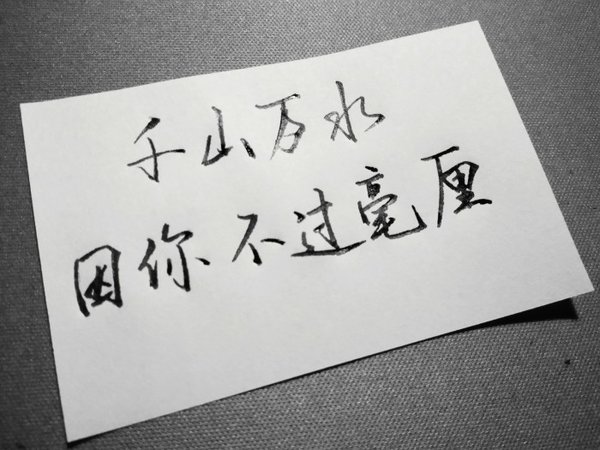 千山万水
因你不过毫厘